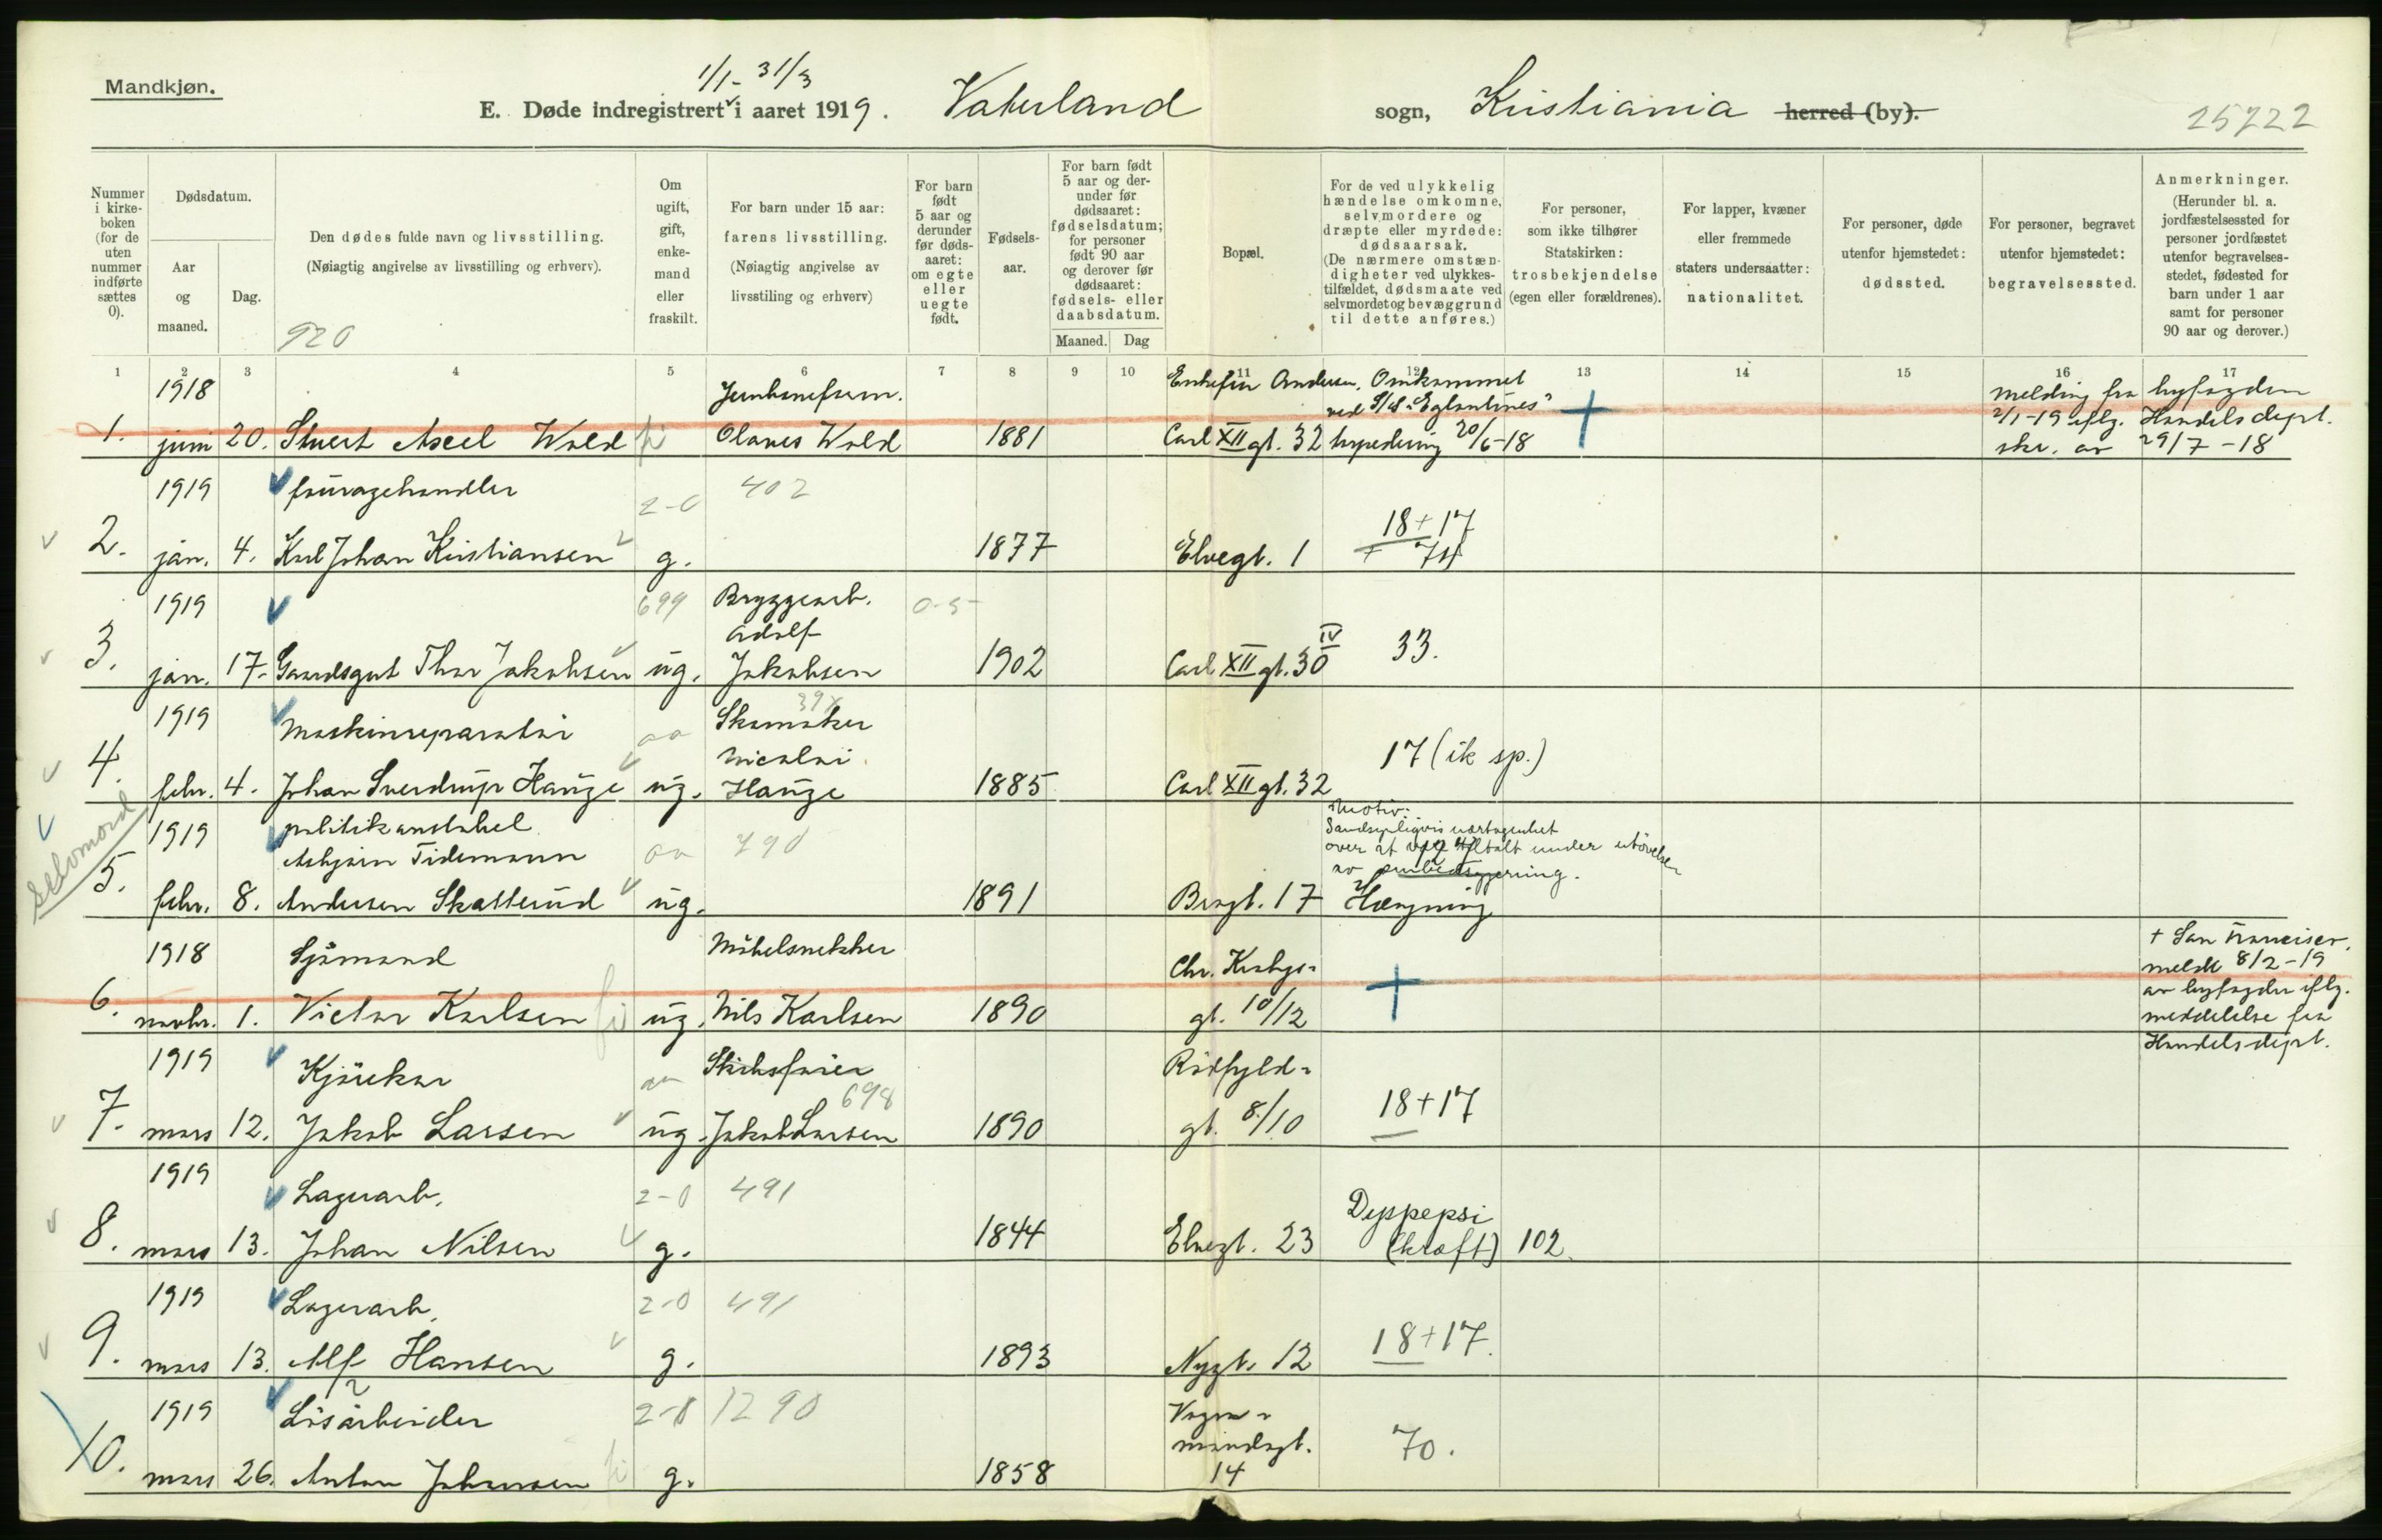 Mandkjøn.
1/1 - 31/3
E. Døde indregistrert i aaret 1919. Vaterland sogn, Kristiania herred (by).
25222
Nummer i kirkeboken (for de uten nummer indførte sættes 0).
Dødsdatum.
Aar og maaned.
Dag.
Den dødes fulde navn og livsstilling.
(Nøiagtig angivelse av livsstilling og erhverv).
920
Om ugift, gift, enkemand eller fraskilt.
For barn under 15 aar: farens livsstilling.
(Nøiagtig angivelse av livsstiling og erhverv)
For barn født 5 aar og derunder før dødsaaret: om egte eller uegte født.
Fødselsaar.
For barn født 5 aar og derunder før dødsaaret: fødselsdatum; for personer født 90 aar og derover før dødsaaret: fødsels- eller daabsdatum.
Maaned. Dag
Bopæl.
For de ved ulykkelig hændelse omkomne, selvmordere og dræpte eller myrdede: dødsaarsak.
(De nærmere omstændigheter ved ulykkestilfældet, dødsmaate ved selvmordet og bevæggrund til dette anføres.)
For personer, som ikke tilhører Statskirken: trosbekjendelse (egen eller forældrenes).
For lapper, kvæner eller fremmede staters undersaatter: nationalitet.
For personer, døde utenfor hjemstedet: dødssted.
For personer, begravet utenfor hjemstedet: begravelsessted.
Anmerkninger.
(Herunder bl. a. jordfæstelsessted for personer jordfæstet utenfor begravelsesstedet, fødested for barn under 1 aar samt for personer 90 aar og derover.)
1 2 3 4 5 6 7 8 9 10 11 12 13 14 15 16 17
1918 Andersen. Omkommet melding fra byfogden
ved S/S "Eglantines" 2/1-19 iflg. Handelsdept.
1. juni 20. Axel Wold Olaves Wold 1881 Carl XII gt. 32 torpedering 20/6-18 skr. av 29/7-18
1919 fouragehandler 2-0 402
18+17
2. jan. 4. Karl Johan Kristiansen g. 1877 Elvegt. 1 + 74
1919 699 Bryggearb. 0-5
Adolf
3. jan. 17. Gaardsgut Thor Jakobsen ug. Jakobsen 1902 Carl XII gt. 30 IV 33.
1919 Maskinreparatør aa Skomaker 39x
Nicolai
4. febr. 4. Johan Sverdrup Hauge ug. Hauge 1885 Carl XII gt. 32 17 (ik sp.)
Selvmord
1919 politikonstabel Motiv:
Asbjørn Tidemann aa 790 Sandsynligvis
over at tiltalt under utövelsen
av
5. febr. 8. Andersen Skatterud ug. 1891 Brogt. 17 Hængning
1918 Sjömand Möbelsnekker Chr. Krohgs- + San Francisco.
meldt 8/2-19
6. novbr. 1. Victor Karlsen ug. Nils Karlsen 1890 gt. 10/12 av byfogden iflg.
meddelelse fra
Handelsdept.
1919 Kjörekar aa 698 Rödfyld-
7. mars 12. Jakob Larsen ug. Jakob Larsen 1890 gt. 8/10 18+17
1919 Lagerarb. 2-0 491
Dyspepsi
8. mars 13. Johan Nilsen g. 1844 Elvegt. 23 (kræft) 102.
1919 Lagerarb. 2-0 491
9. mars 13. Alf Hansen g. 1893 Nygt. 12 18+17.
1919 Lösarbeider 2-0 1290 Vogn-
mandsgt.
10. mars 26. Anton Johansen g. 1858 14 70.